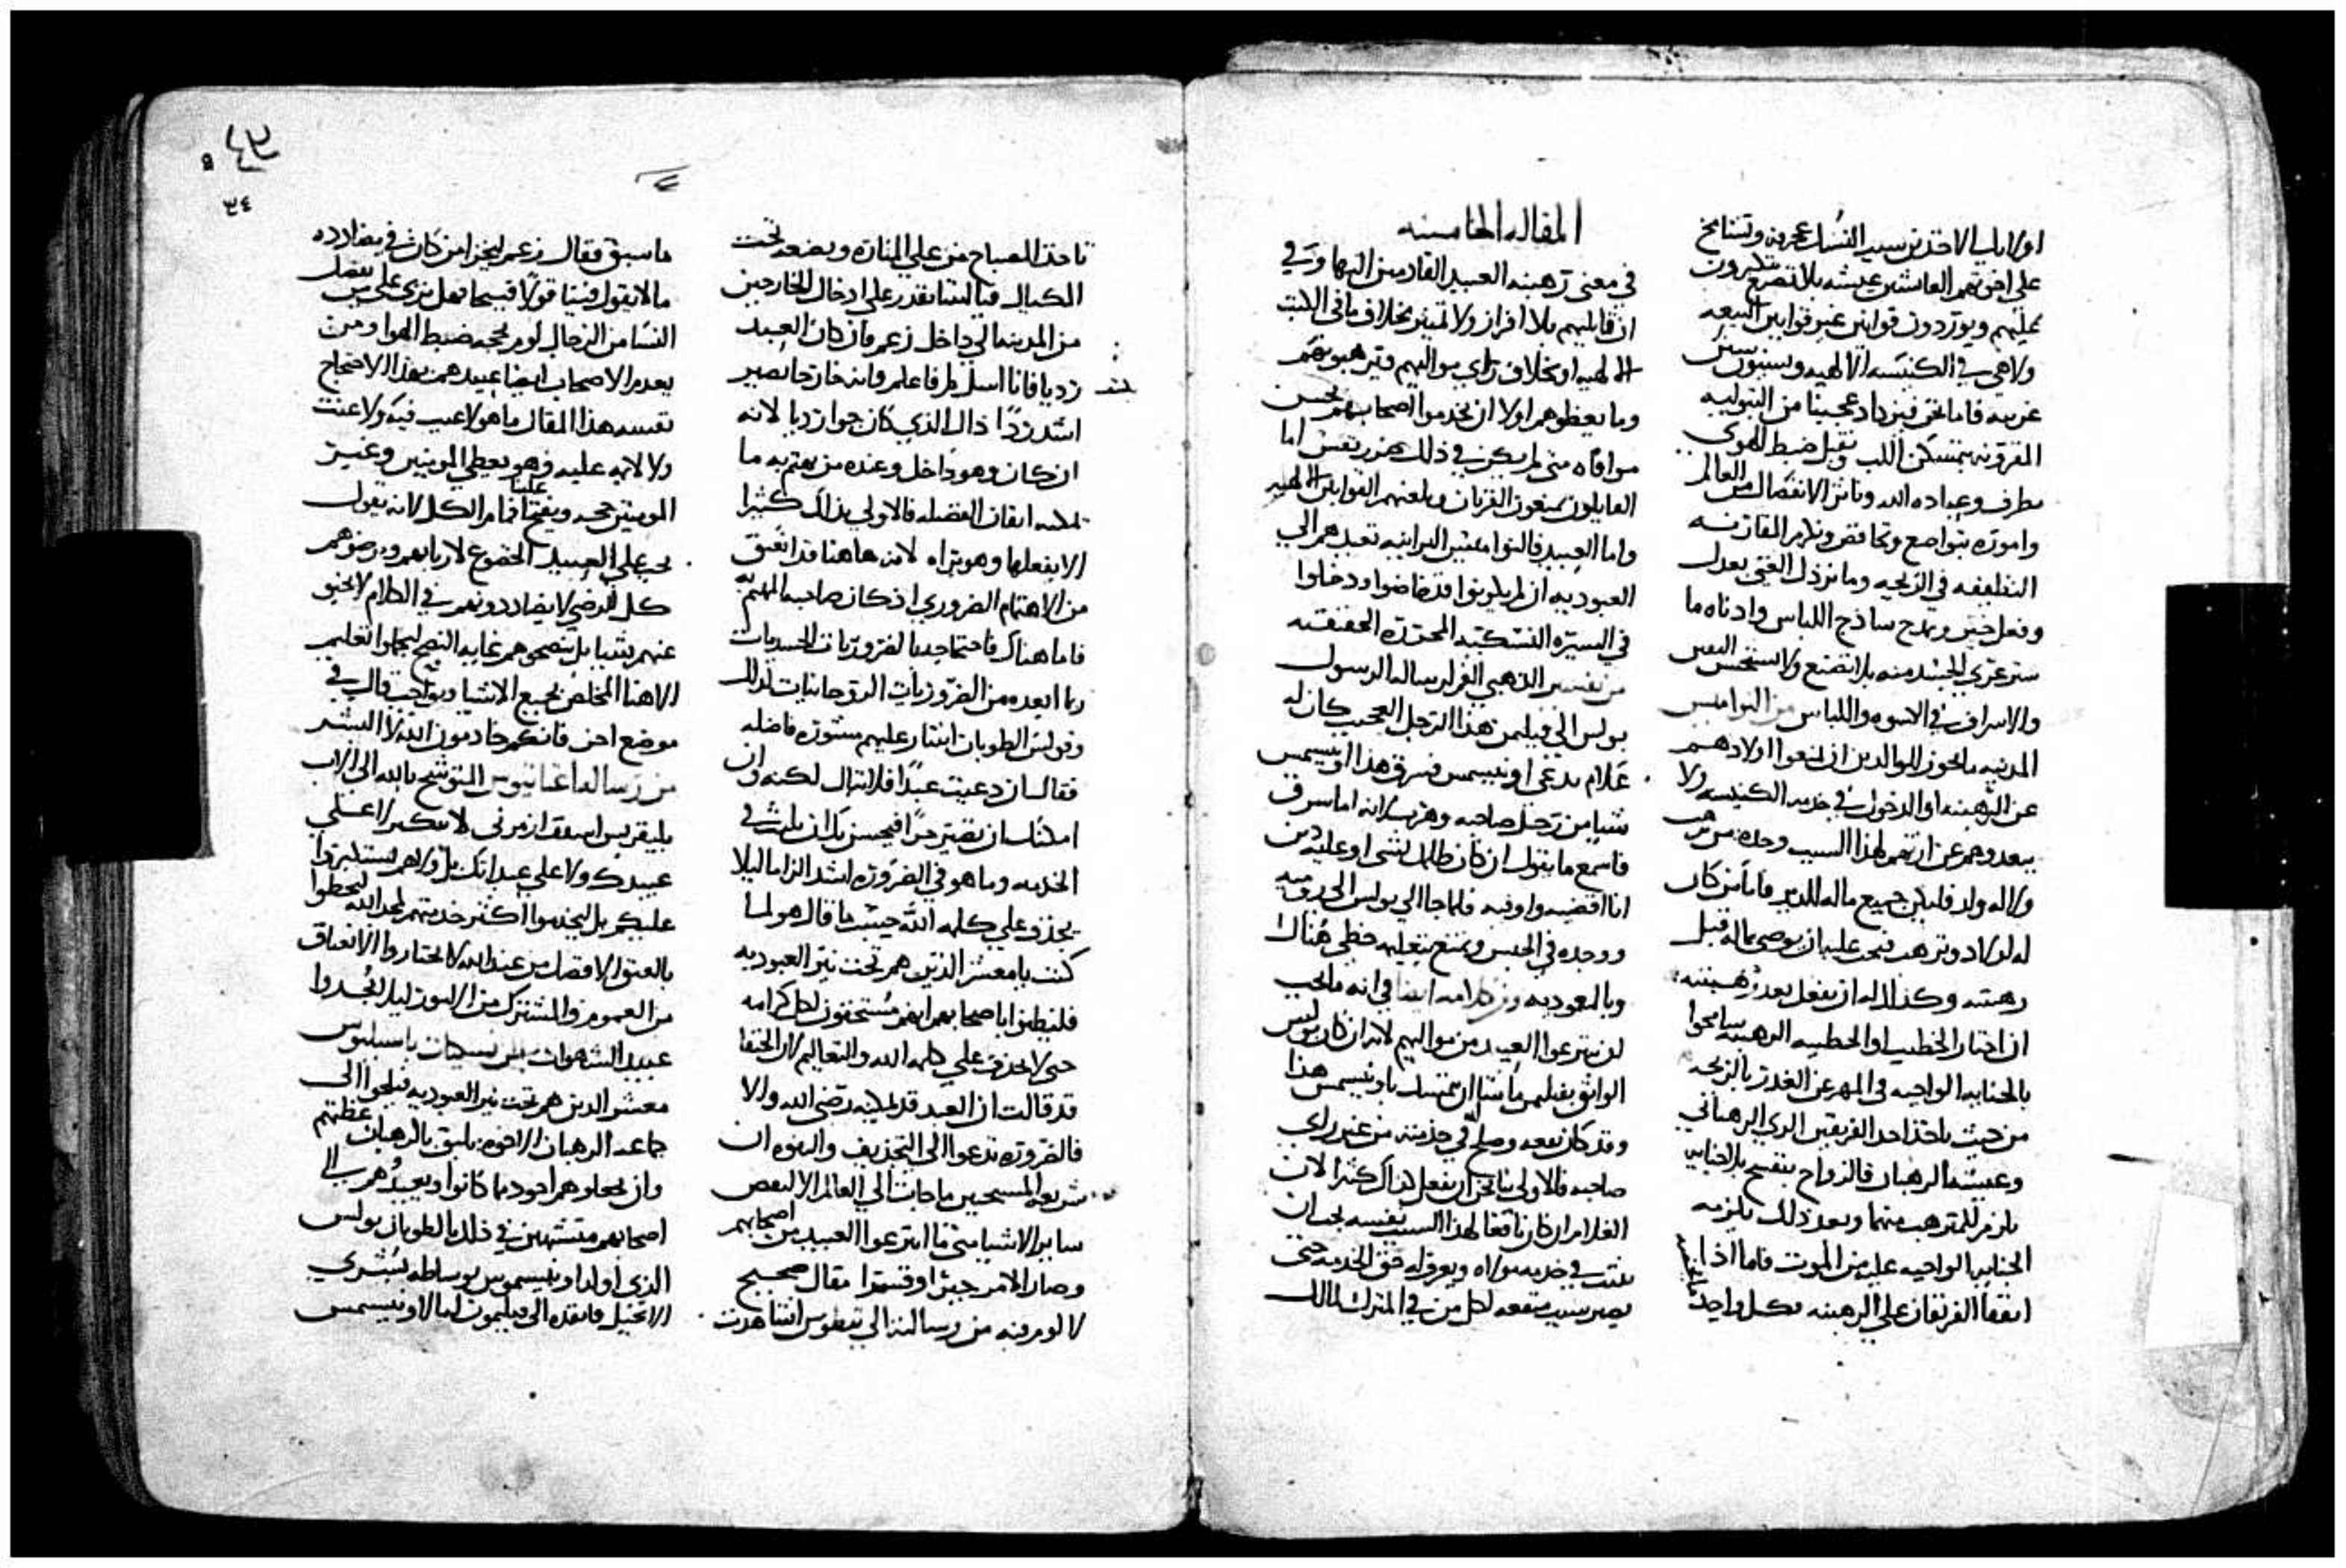 اولايك الاخذين سيد النسك عجرفه وتشامخ
على اخوتهم العايشين عيشه بلا تصنع يتكبرون
عليهم ويوردون قوانين غير قوانين البيعه
ولاهي في الكنيسه الالهيه وسنن
غريبه فاما نحن فنزداد عجبنا من البتوليه
المقرونه بتمسكن اللب ونقبل ضبط الهوى
بطرف وعباده الله ونابر الانفصال من العالم
واموره بتواضع وتخافض ونكرم المقارنه
النظيفه في الزيجه وما نرذل الغنى بعدل
وفعل خير ونمدح ساذج اللباس وادناه ما
ستر عرى الجسد منه بلا تصنع ولا نستحسن
والاسراف في الاسوه واللباس من النواميس
المدنيه ما يجوز للوالدين ان يمنعوا اولادهم
عن الرهبنه او الدخول في خدمه الكنيسه ولا
يبعدوهم عن ارثهم لهذا السبب وحده من ترهب
ولا له ولد فليكن جميع ماله للدير فاما من كان
له اولاد وترهب فيجب عليه ان يوصي بماله قبل
رهبنته وكذلك له ان يفعل بعد رهبنته
ان اختار الخطيب او الخطيبه الرهبنه سامحوا
بالجنايه الواجبه في المهر عن الغدر بالزيجه
من حيث ياخذ احد الفريقين الزي الرهباني
وعيشه الرهبان فالزواج ينفسخ بلا جنايه
يلزم للمترهب منهما وبعد ذلك يلزمه
الجنايه الواجبه عليه من الموت فاما اذا
اتفقا الفريقان على الرهبنه فكل واحد
المقاله الخامسه
في معنى رهبنه العبيد القادمين اليها وفي
ان قابليهم بلا افراز ولا تمييز بخلاف ما في الكتب
الالهيه او بخلاف راي مواليهم وترهبونهم
وما يعظوهم اولا ان يخدموا اصحابهم بحسن
موافاه متى لم يكن في ذلك ضرر نفس اما
القابلون يمنعون القربان ويلعنهم القوانين الالهيه
واما العبيد فالنواميس البرانيه تعيدهم الى
العبوديه ان لم يكونوا قد فاضوا ودخلوا
في السيره النسكيه المحرره الحقيقيه
من تفسير الذهبي الفم لرساله الرسول
بولس الى فيليمن هذا الرجل العجيب كان له
غلام يدعى اونيسمس فسرق هذا اونيسمس
شيا من رحل صاحبه وهرب لانه اما سرق
فاسمع ما يقول ان كان ظلمك بشي او عليه دين
انا اقضيه واوفيه فلما جا الى بولس الى روميه
ووجده في الحبس وتمتع بتعليمه حظى هناك
وبالمعوديه ومن كلامه ايضا في انه ما يجب
لن ينزعوا العبيد من مواليهم لانه ان كان بولس
الواثق بفيليمن ما شا ان يتمسك باونيسمس هذا
وقد كان نفعه وصلح في خدمته من غير راي
صاحبه فالاولى بنا نحن ان نفعل ذلك كثيرا لان
الغلام ان كان نافعا لهذا السبب نفسه يجب ان
يثبت في خدمه مولاه ويعرف له حق الخدمه حتى
يصير سبب منفعه لكل من في المنزل لمالك
تاخذ المصباح من على المناره وتضعه تحت
المكيال فياليتنا نقدر على ادخال الخارجين
من المدينه الى داخل زعم فان كان العبد
رديا فانا اسل طرفا علم وانه خارجا يصير
اشد ردا ذاك الذي كان جوا رديا لانه
ان كان وهو داخل وعنده من يهتم به ما
يمكنه اتقان الفضيله فالاولى بذلك كثيرا
الا يفعلها وهو برا لانه هاهنا قد اعتق
من الاهتمام الضروري اذ كان صاحبه المهتم به
فاما هناك فاحتياجه بالضروريات الجسديات
ربما ابعده من الضروريات الروحانيات لذلك
وبولس الطوبان اشار عليهم مشوره فاضله
فقال ان دعيت عبدا فلا تبال لكنه وان
امكنك ان تصير حرا فيحسن بك ان تلبث في
الخدمه وما هو في الضروره اشد الزاما ليلا
يجذف على كلمه الله حيث ما قال هو لما
كتب يا معشر الذين هم تحت نير العبوديه
فليظنوا باصحابهم انهم مستحقون لكل كرامه
حتى لا يجذف على كلمه الله والتعاليم لان الحنفا
قد قالت ان العبد قد يمكنه رضى الله والا
فالضروره تدعوا الى التجذيف والهزو ان
شريعه المسيحيين ما جات الى العالم الا لنقض
ساير الاشيا متى ما انتزعوا العبيد من اصحابهم
وصار الامر جبرا وقسرا مقال صحيح
لالومرفنه من رسالته الى تيطوس اننا هدت
ما سبق فقال زعم ليخزا من كان في مضادده
ما لا يقول فينا قولا قبيحا فهل ترى على من يفصل
النسا من الرجال لوم بحجه ضبط الهوا ومن
يعدم الاصحاب ايضا عبيدهم بهذا الاحتجاج
نفسه هذا المقال ما هو لا عيب فيه ولا عنت
ولا لايمه عليه فهو يعطي المومنين وغير
المومنين حجه ويفتح علينا فمام الكل لانه يقول
يجب على العبيد الخضوع لاربابهم ويرضوهم
كل الرضى لا يضاددونهم في الكلام لا يخبو
عنهم شيا بل ينصحوهم غايه النصح ليجملوا تعليم
الاهنا المخلص بجميع الاشيا وبواجب قال في
موضع اخر فانكم خادمون الله لا البشر
من رساله اغناتيوس المتوشح بالله الى الاب
بليقربس اسقف ازمرني لا تتكبر اعلى
عبيدك ولا على عبداتك بل ولا هم يستكبروا
عليكم بل ليخدموا اكثر خدمتهم لمجد الله ليحظوا
بالعتق الافضل من عند الله لا يختاروا الانعتاق
من العموم والمشترك من الاخوه ليلا يوجدوا
عبيد الشهوات من نسكيات باسيليوس
معشر الذين هم تحت نير العبوديه فيلجوا الى
جماعه الرهبان الاخوه يليق بالرهبان عظتهم
وان يجعلوهم اجود مما كانوا ويعيدوهم الى
اصحابهم متشبهين في ذلك بالطوبان بولس
الذي اولد اونيسيموس بوساطه بشرى
الانجيل فانفذه الى فيليمون لمالا اونيسمس
٣٤